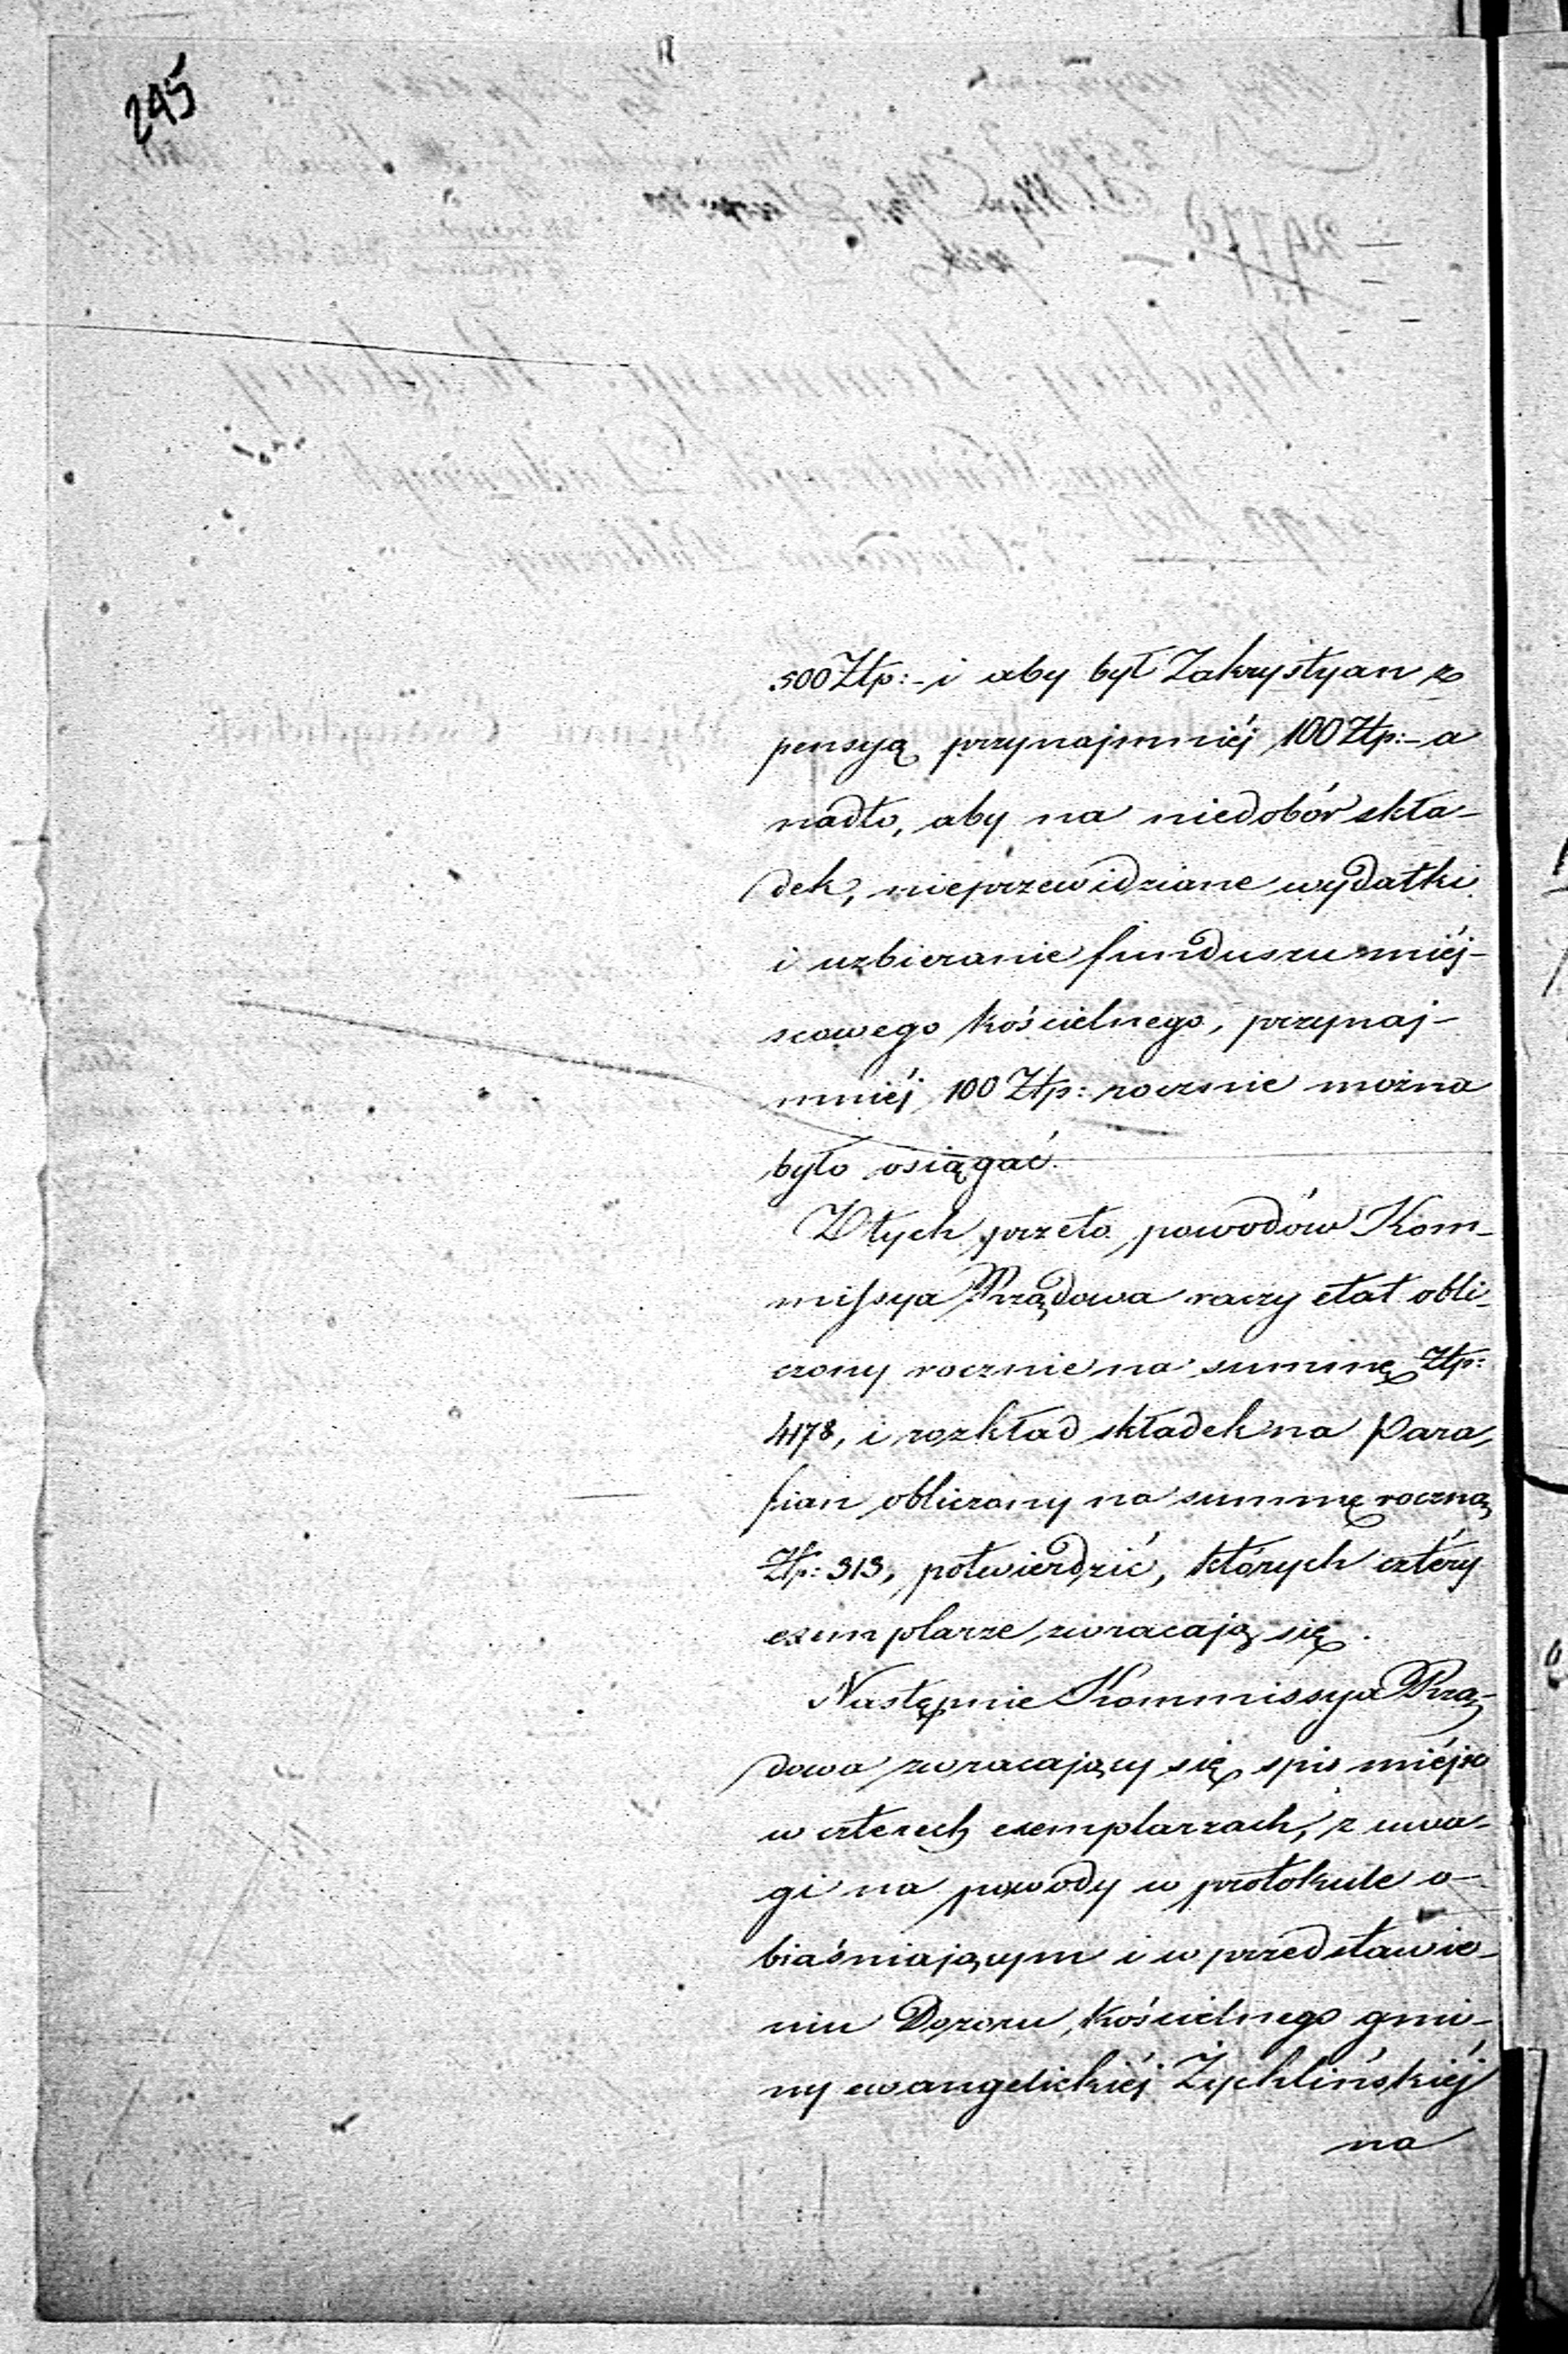 245
500 Złp:- i aby był Zakrystyan z
pensyą przynajmniéj 100 Złp:- a
nadto, aby na niedobór skła-
dek, nieprzewidziane wydatki
i uzbieranie funduszu miéj-
scowego kościelnego, przynaj-
mniéj 100 Złp: rocznie można
było osiągać.
Z tych przeto powodów Kom-
missya Rządowa raczy etat obli-
czony rocznie na summę Złp:
4178, i rozkład składek na Para-
fian obliczony na summę roczną
Złp: 313, potwierdzić, których cztéry
exemplarze zwracają się.
Następnie Kommissya Rzą-
dowa zwracający się spis miéjsc
w czterech exemplarzach, z uwa-
gi na powody w protokule o-
biaśniającym i w przedstawie-
niu Dozoru Kościelnego gmi-
ny ewangelickiéj Żychlińskiéj
na